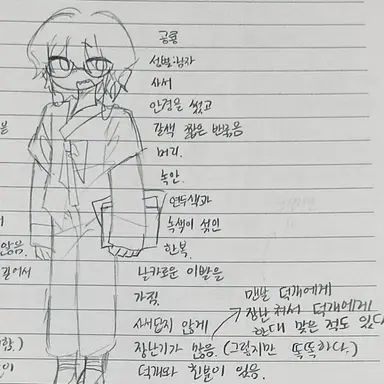 공룡
성별:남자
사서
안경을 썼고
갈색 짧은 반묶음
머리.
녹안.
연두색과
녹색이 섞인
한복.
날카로운 이빨을
가짐.
사서답지 않게
장난기가 많음. (그렇지만 똑똑하다.)
덕개와 친분이 있음.
맨날 덕개에게
장난쳐서 덕개에게
한대 맞은 적도 있다
않음.
길어서
함.)